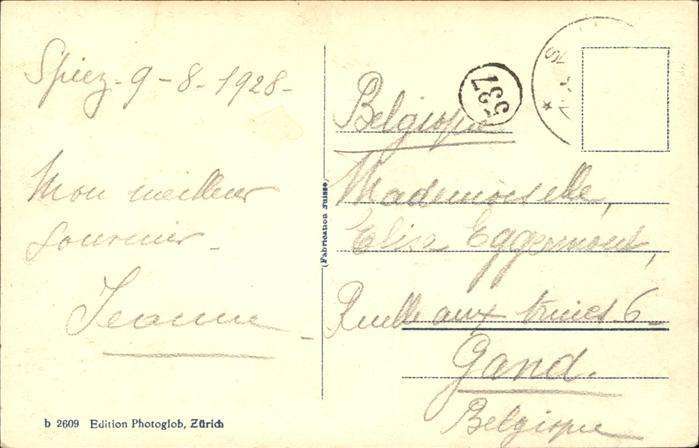 Spiez - 9 - 8 - 1928 -
Mon meilleur
souvenir -
Jeanne -
b 2609 Edition Photoglob, Zürich
(Fabrication Suisse)
537
Belgique
Mademoiselle,
Elisa Eggermont,
Ruelle aux truies 6
Gand.
Belgique